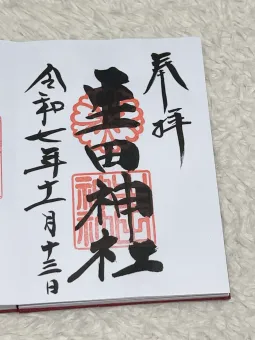 奉拝
田神社
令和七年十一月十三日